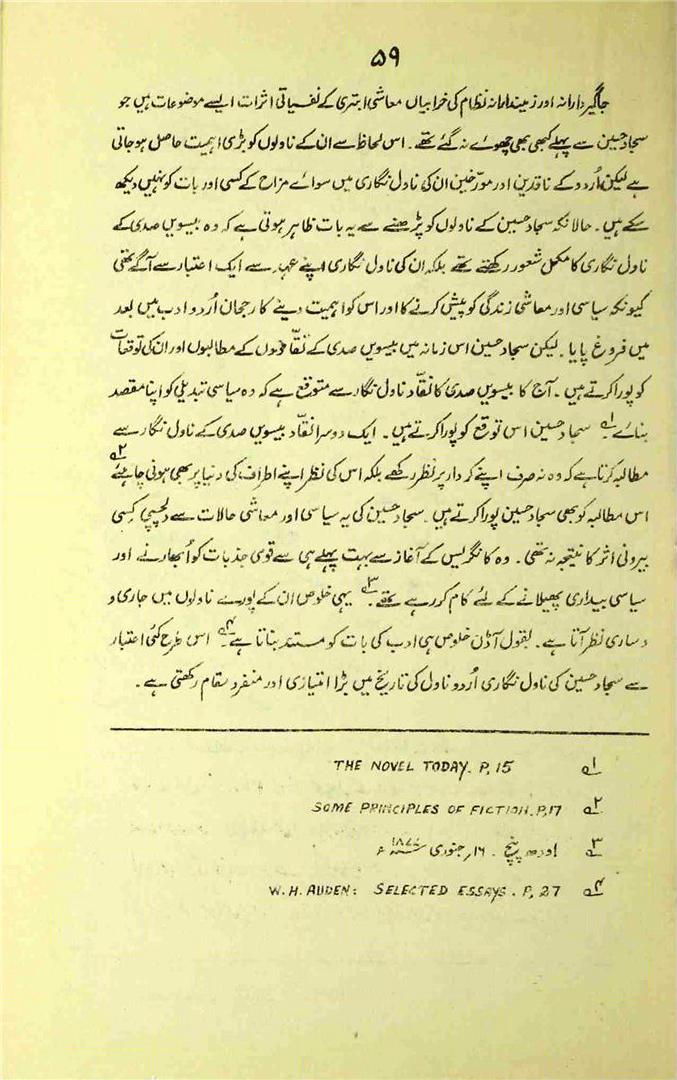 ۵۹
جاگیردارانہ اور زمیندارانہ نظام کی خرابیاں معاشی ابتری کے نفسیاتی اثرات ایسے موضوعات ہیں جو
سجاد حسین سے پہلے کبھی بھی چھوئے نہ گئے تھے۔ اس لحاظ سے ان کے ناولوں کو بڑی اہمیت حاصل ہو جاتی
ہے لیکن اُردو کے ناقدین اور مورّخین ان کی ناول نگاری میں سوائے مزاح کے کسی اور بات کو نہیں دیکھ
سکے ہیں۔ حالانکہ سجاد حسین کے ناولوں کو پڑھنے سے یہ بات ظاہر ہوتی ہے کہ وہ بیسویں صدی کے
ناول نگاری کا مکمل شعور رکھتے تھے بلکہ ان کی ناول نگاری اپنے عہد سے ایک اعتبار سے آگے تھی
کیونکہ سیاسی اور معاشی زندگی کو پیش کرنے کا اور اس کو اہمیت دینے کا رجحان اُردو ادب میں بعد
میں فروغ پایا۔ لیکن سجاد حسین اس زمانہ میں بیسویں صدی کے نقّادوں کے مطالبوں اور ان کی توقعات
کو پورا کرتے ہیں۔ آج کا بیسویں صدی کا نقّاد ناول نگار سے متوقع ہے کہ وہ سیاسی تبدیلی کو اپنا مقصد
بنائے ۱؎ سجاد حسین اس توقع کو پورا کرتے ہیں۔ ایک دوسرا نقّاد بیسویں صدی کے ناول نگار سے
مطالبہ کرتا ہے کہ وہ نہ صرف اپنے کردار پر نظر رکھے بلکہ اس کی نظر اپنے اطراف کی دنیا پر بھی ہونی چاہئے ۲؎
اس مطالبہ کو بھی سجاد حسین پورا کرتے ہیں۔ سجاد حسین کی یہ سیاسی اور معاشی حالات سے دلچسپی کسی
بیرونی اثر کا نتیجہ نہ تھی۔ وہ کانگریس کے آغاز سے بہت پہلے ہی سے قومی جذبات کو اُبھارنے اور
سیاسی بیداری پھیلانے کے لئے کام کر رہے تھے ۳؎ یہی خلوص ان کے پورے ناولوں میں جاری و
و ساری نظر آتا ہے۔ بقول آڈن خلوص ہی ادب کی بات کو مستند بناتا ہے ۴؎ اس طرح کئی اعتبار
سے سجاد حسین کی ناول نگاری اُردو ناول کی تاریخ میں بڑا امتیازی اور منفرد مقام رکھتی ہے۔
۱؎ THE NOVEL TODAY. P, 15
۲؎ SOME PRINCIPLES OF FICTION. P, 17
۳؎ اودھ پنچ۔ ۱۶؍ جنوری ۱۸۷۷ء
۴؎ W. H. AUDEN: SELECTED ESSAYS. P, 27